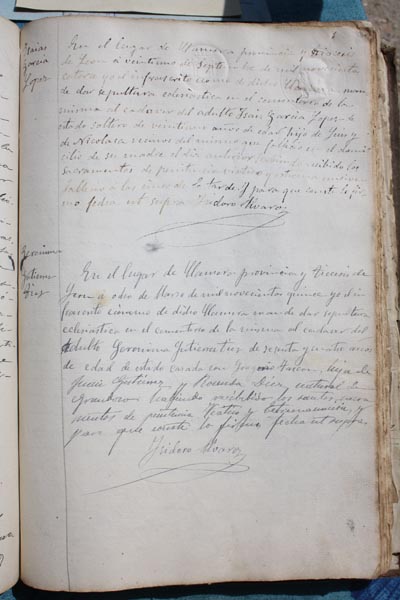 Isaias
Garcia
Lopez
En el lugar de Llamera provincia y Diócesis
de Leon a veintiuno de Septiembre de mil novecientos
catorce yo el infrascrito ecónomo de dicho Llamera mandé
dar sepultura eclesiástica en el cementerio de la
misma al cadaver del adulto Isaias Garcia Lopez de
estado soltero de veintiun años de edad hijo de
de Nicolasa vecinos del mismo que falleció en el domi
cilio de su madre el dia anterior habiendo recibido los
sacramentos de penitencia viatico y extrema uncion
falleció a las cinco de la tarde y para que conste lo fir
mo fecha ut supra Isidoro Alvarez
Geronima
Gutierrez
Diez
En el lugar de Llamera provincia y Diócesis de
Leon a ocho de Marzo de mil novecientos quince yo el in
frascrito ecónomo de dicho Llamera mandé dar sepultura
eclesiástica en el cementerio de la misma al cadaver del
adulto Geronima Gutierrez Diez de setenta y cuatro años
de edad de estado casada con hija de
Gutierrez y Rosenda Diez natural de
habiendo recibido los santos sacra
mentos de penitencia Viatico y Extremauncion y
para que conste lo firmo fecha ut supra
Isidoro Alvarez